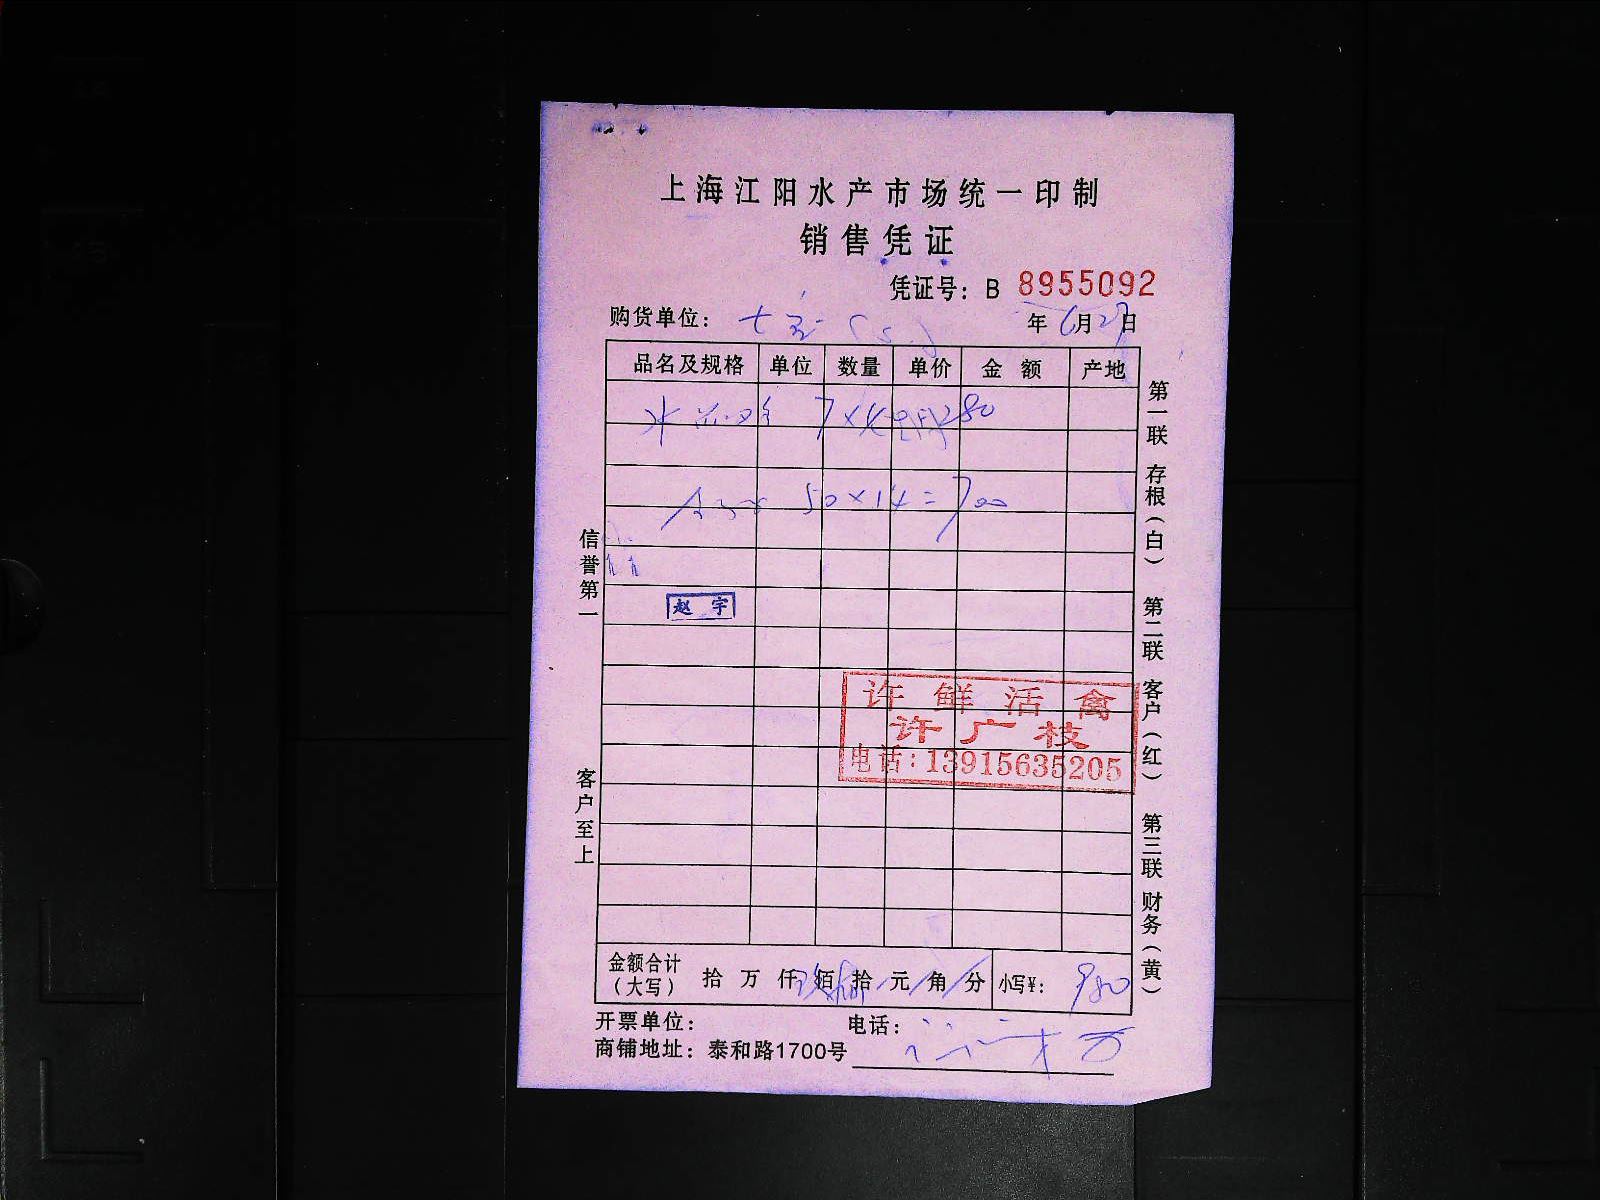 上海江阳水产市场统一印制
销售凭证
凭证号：B 8955092
购货单位：七宝
年6月27日
品名及规格 单位 数量 单价 金额 产地
7×40=280
50×14=700
赵宇
许鲜活禽
许广枝
电话：13915635205
金额合计（大写） 拾 万 仟 佰 拾 元 角 分 小写¥：980
开票单位： 电话：
商铺地址：泰和路1700号
信誉第一 客户至上
第一联 存根（白） 第二联 客户（红） 第三联 财务（黄）